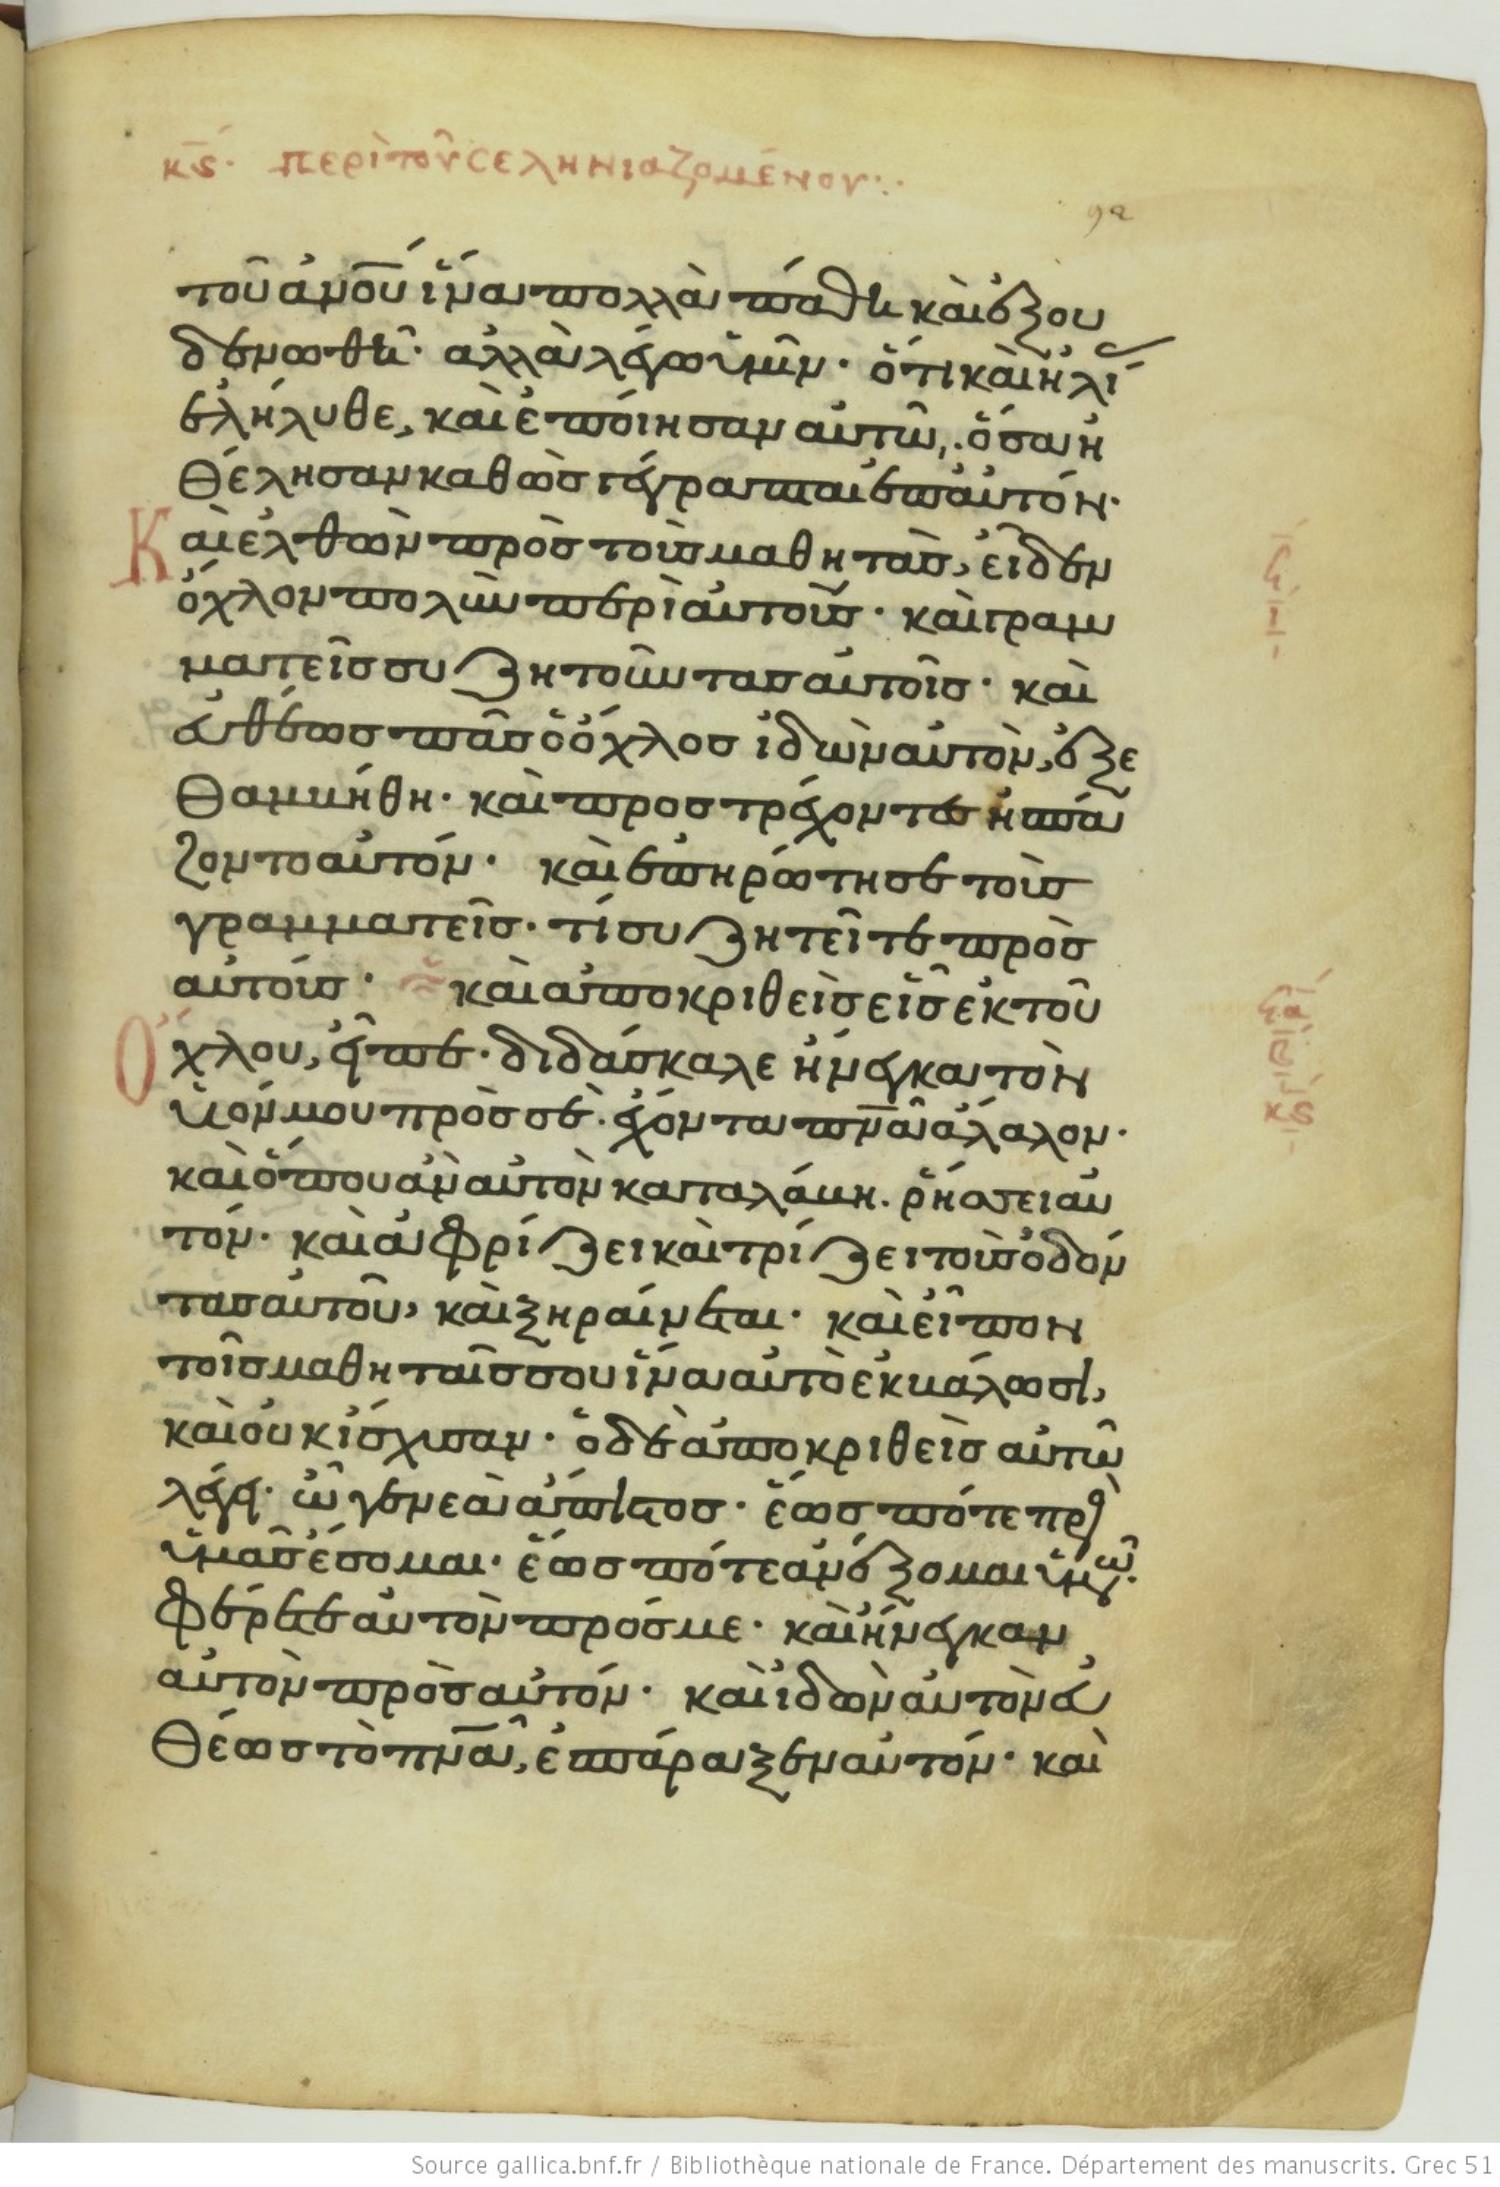 κϛ. περὶ τοῦ σεληνιαζομένου:·
τοῦ ἀνου ἵνα πολλὰ πάθη καὶ ἐξου
δενωθῆ· ἀλλὰ λέγω ὑμῖν· ὅτι καὶ ἡλί
ἐλήλυθε, καὶ ἐποίησαν αὐτῶ, ὅσα ἠ
θέλησαν καθὼς γέγραπται ἐπ αὐτόν·
Καὶ ἐλθὼν πρὸς τοὺς μαθητάς, εἶδεν
ὄχλον πολὺν περὶ αὐτοὺς· καὶ γραμ
ματεῖς συζητοῦντας αὐτοῖς· καὶ
εὐθέως πᾶς ὁ ὄχλος ἰδὼν αὐτὸν, ἐξε
θαμβήθη· καὶ προστρέχοντες ἠσπά
ζοντο αὐτόν· καὶ ἐπηρώτησε τοὺς
γραμματεῖς· τί συζητεῖτε πρὸς
αὐτούς· καὶ ἀποκριθεὶς εἷς ἐκ τοῦ
Ὄχλου, εἶπε· διδάσκαλε ἤνεγκα τὸν
υἱόν μου πρὸς σὲ· ἔχοντα πνᾶ ἄλαλον·
καὶ ὅπου ἂν αὐτὸν καταλάβη· ῥήσσει αὐ
τόν· καὶ ἀφρίζει καὶ τρίζει τοὺς ὀδόν
τας αὐτοῦ, καὶ ξηραίνεται· καὶ εἶπον
τοῖς μαθηταῖς σου ἵνα αὐτὸ ἐκβάλωσι,
καὶ οὐκ ἴσχυσαν· ὁ δὲ ἀποκριθεὶς αὐτῶ
λέγει· ὦ γενεὰ ἄπιστος· ἕως πότε πρὸς
ὑμᾶς ἔσομαι· ἕως πότε ἀνέξομαι ὑμῶν·
φέρετε αὐτὸν πρός με· καὶ ἤνεγκαν
αὐτὸν πρὸς αὐτόν· καὶ ἰδὼν αὐτὸν εὐ
θέως τὸ πνᾶ, ἐσπάραξεν αὐτόν· καὶ
κϛ